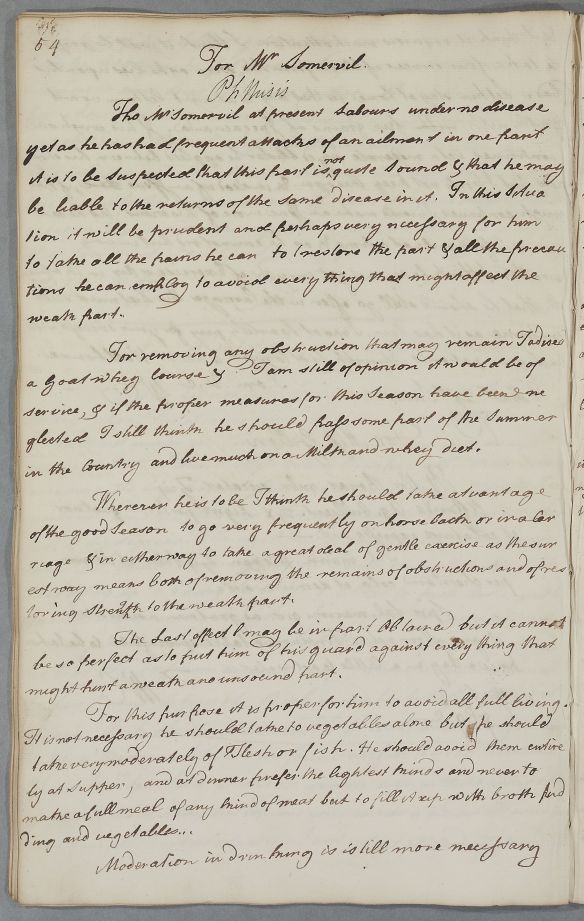 54
For Mr Somervil.
Phthisis
Tho Mr Somervil at present Labours under no disease
yet as he has had frequent attacks of an ailment in one part
it is to be suspected that this part is not quite sound & that he may
be liable to the returns of the same disease in it. In this Situa
tion it will be prudent and perhaps very necessary for him
to take all the pains he can to restore the part & all the precau
tions he can employ to avoid every thing that might affect the
weak part.
For removing any obstruction that may remain I advised
a Goat whey Course & I am still of opinion it would be of
service, & if the proper measures for this Season have been ne
glected I still think he should pass some part of the Summer
in the Country and live much on a Milk and whey diet.
Wherever he is to be I think he should take advantage
of the good Season to go very frequently on horse back or in a Car
riage & in either way to take a great deal of gentle exercise as the sur
est way means both of removing the remains of obstructions and of res
toring strength to the weak part.
The Last effect may be in part Obtained but it cannot
be so perfect as to put him of his guard against every thing that
might hurt a weak and unsound part.
For this purpose it is proper for him to avoid all full living.
It is not necessary he should take to vegetables alone but he should
take very moderately of Flesh or fish. He should avoid them entire
ly at Supper, and at dinner prefer the lightest kinds and never to
make a full meal of any kind of meat but to fill it up with broth pud
ding and vegetables...
Moderation in drinking is still more necessary